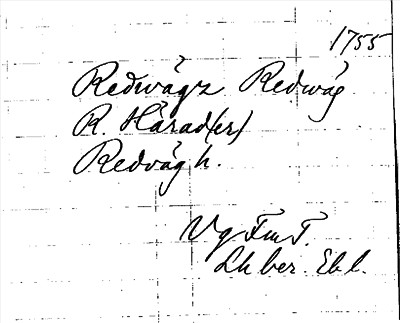 1755
Redwägz Redwäg
R. Härad(er)
Redväg h.
Vg FmT.
Lhber. Ebl.